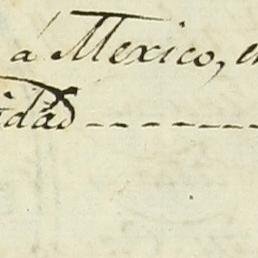 á Mexico, en
idad - - - - - - -